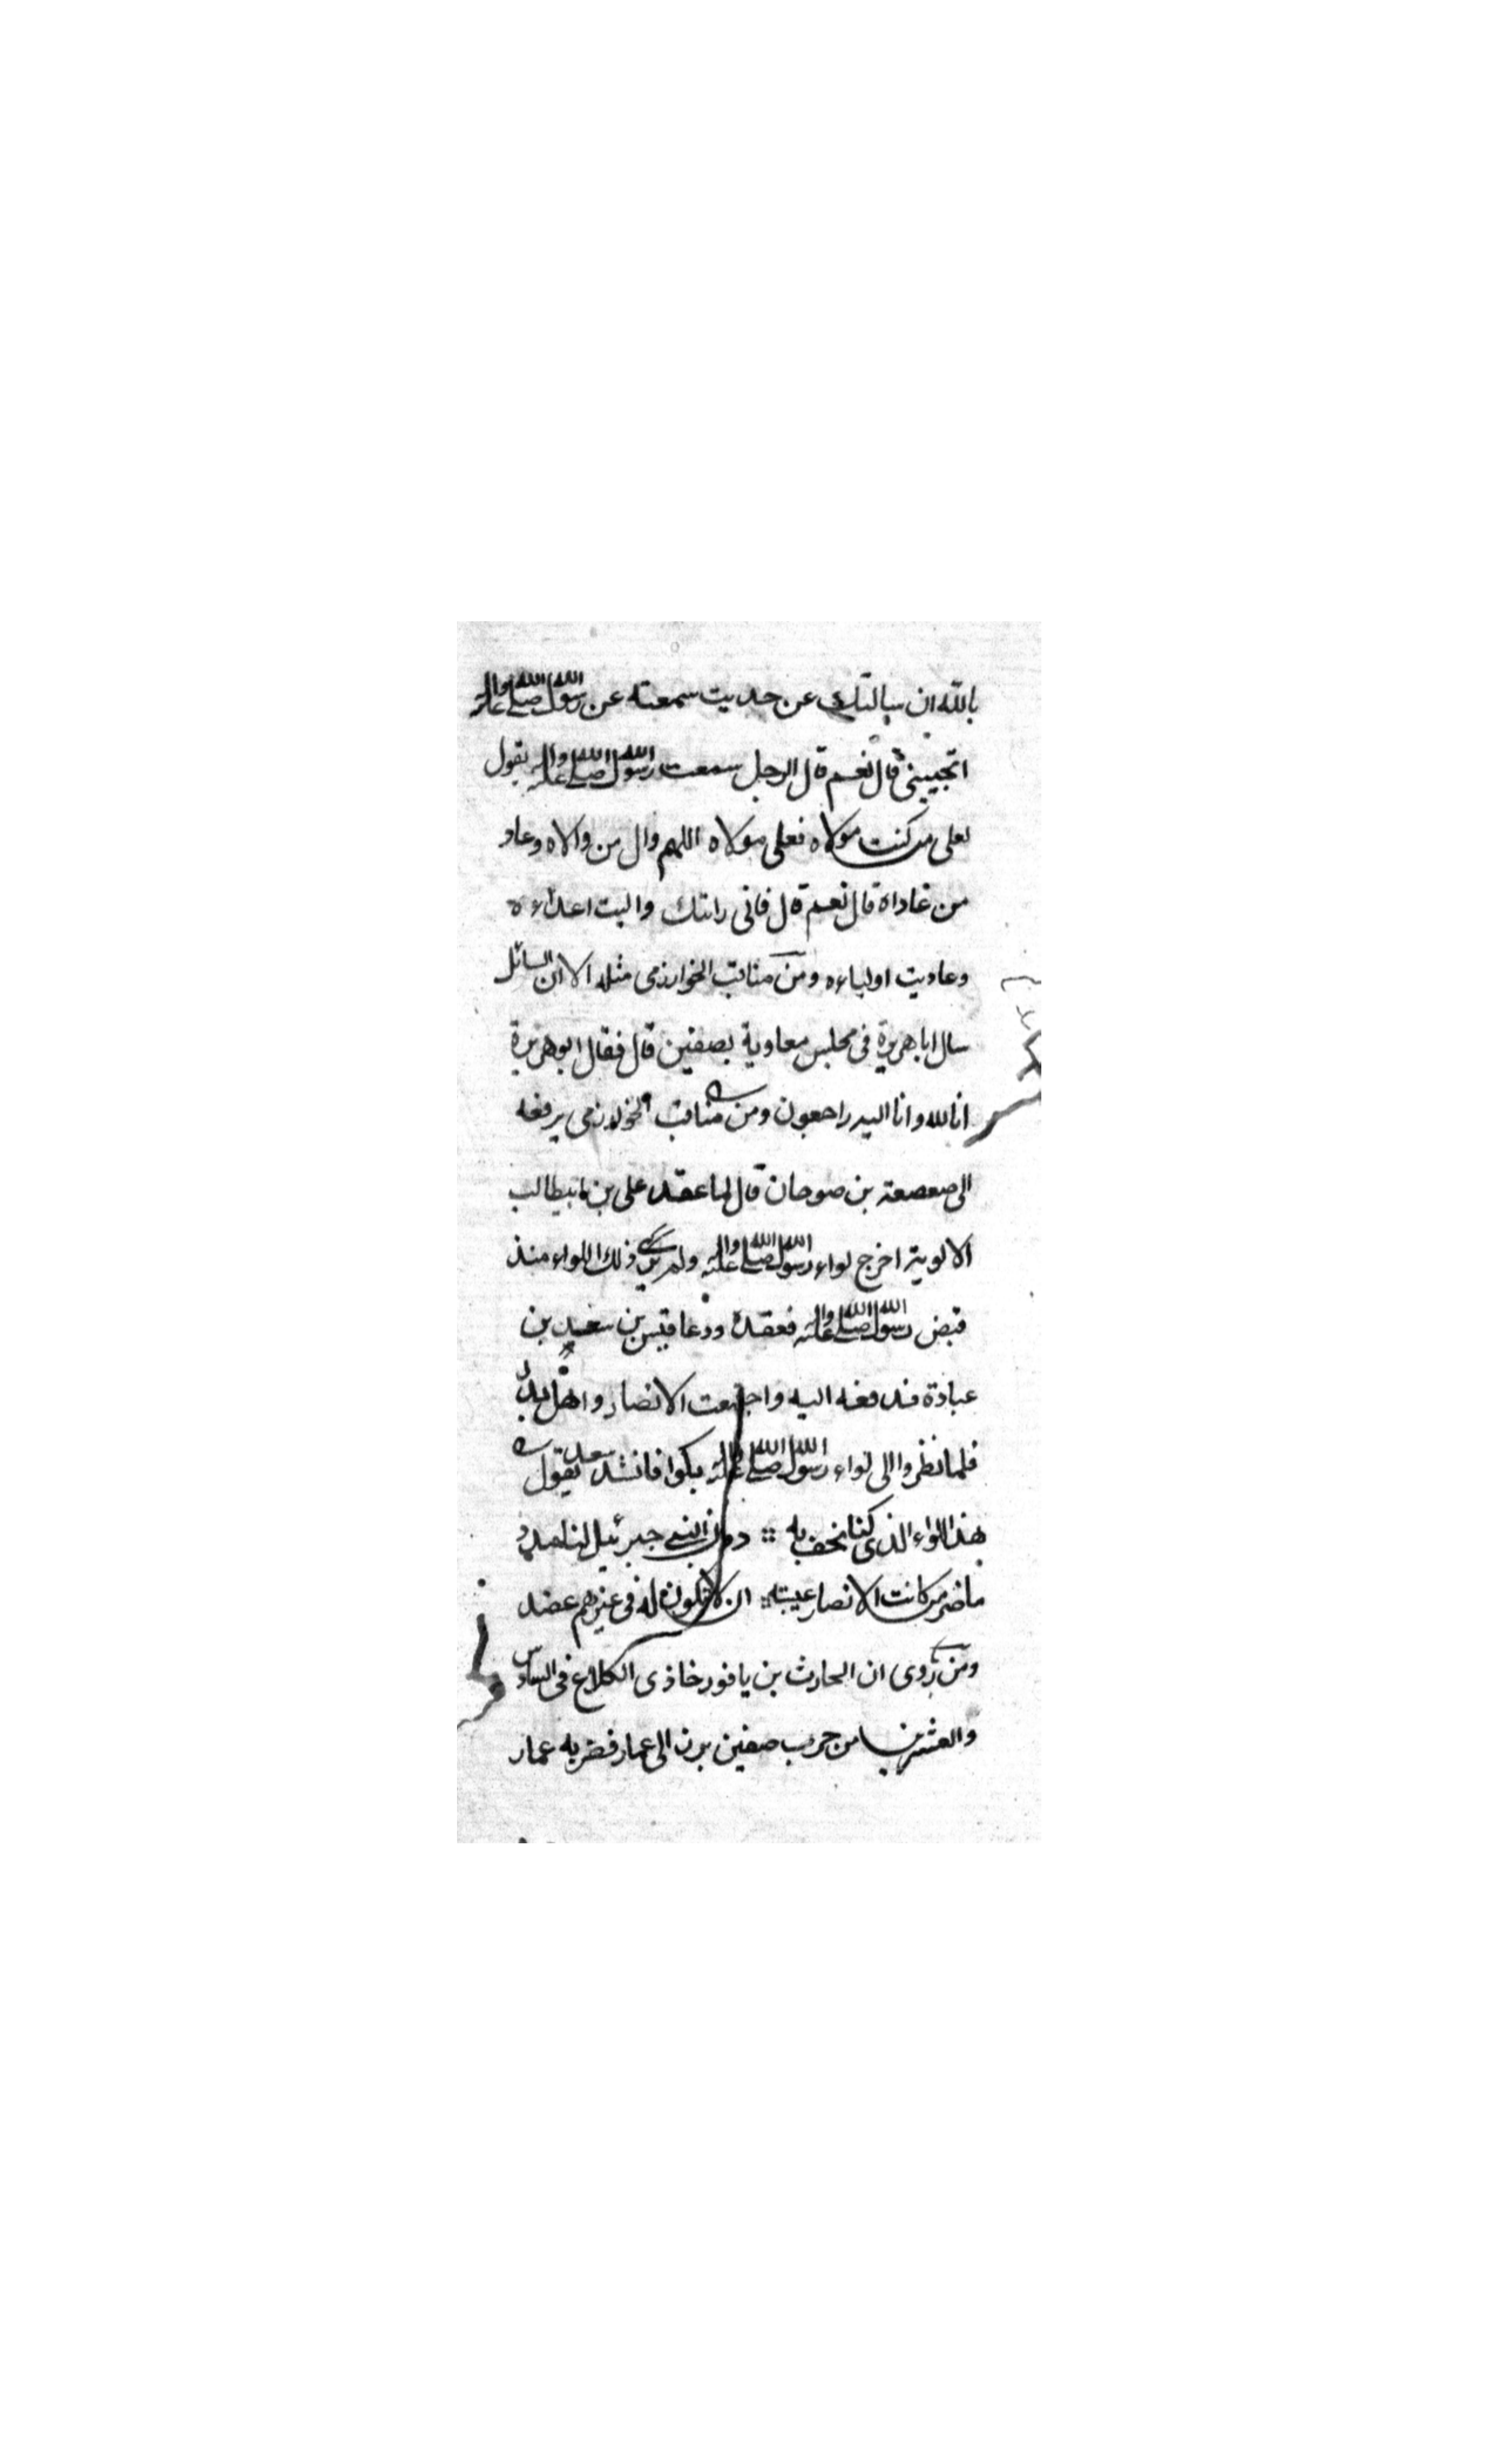 بالله ان سالتك عن حديث سمعته عن رسول الله صلى الله عليه واله
اتجيبنى قال نعم قال الرجل سمعت رسول الله صلى الله عليه واله يقول
لعلى من كنت مولاه فعلى مولاه اللهم وال من والاه وعاد
من عاداه قال نعم قال فانى رايتك واليت اعداءه
وعاديت اولياءه ومن مناقب الخوارزمى مثله الا ان السائل
سال اباهريرة فى مجلس معاوية بصفين قال فقال ابوهريرة
انا لله وانا اليه راجعون ومن مناقب الخوارزمى يرفعه
الى صعصعة بن صوحان قال لما عقد على بن ابيطالب
الالوية اخرج لواء رسول الله صلى الله عليه واله ولم ير ذلك اللواء منذ
قبض رسول الله صلى الله عليه واله فعقده ودعا قيس بن سعد بن
عبادة فدفعه اليه واجتمعت الانصار واهل بدر
فلما نظروا الى لواء رسول الله صلى الله عليه واله بكوا فانشد سعد يقول
هذا اللواء الذى كنا نحف به :: دون النبى جبرئيل لنا مدد
ما ضر من كانت الانصار عيبته :: ان لا تكون له فى غيرهم عضد
ومن روى ان الحارث بن ياقور خا ذى الكلاع فى السادس
والعشرين من حرب صفين برز الى عمار فضربه عمار